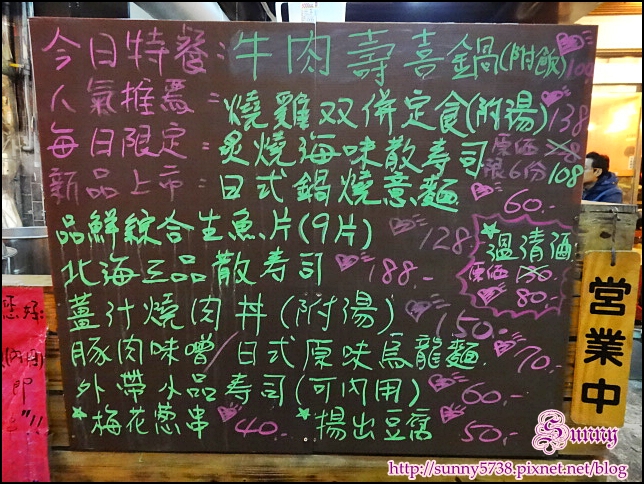 今日特餐:牛肉壽喜鍋(附飲) 100
人氣推薦:燒雞双併定食(附湯) 138
每日限定:炙燒海味散寿司 原価 限6份 108
新品上市:日式鍋燒意麵 60.-
品鮮綜合生魚片(9片) 128.-
北海三品散寿司 188.-
薑汁燒肉丼(附湯) 150.-
豚肉味噌/日式原味烏龍麵 70.-
外帶小品寿司(可內用) 60.-
*梅花蔥串 40.-
*揚出豆腐 50.-
*溫清酒
原価
80.-
營業中
您好:
內用
即
Sunny
http://sunny5738.pixnet.net/blog